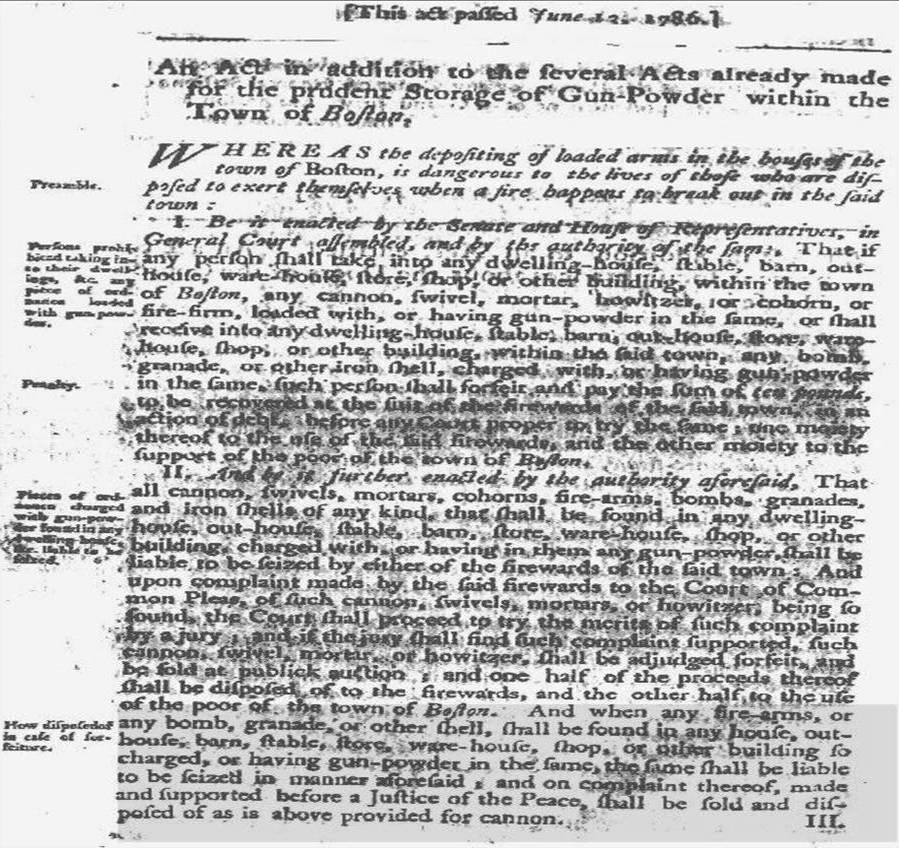 [This act paſſed June 12. 1786.]
An Act in addition to the ſeveral Acts already made
for the prudent Storage of Gun-Powder within the
Town of Boſton.
WHEREAS the depoſiting of loaded arms in the houſes of the
town of Boſton, is dangerous to the lives of thoſe who are diſ-
Preamble.
poſed to exert themſelves when a fire happens to break out in the ſaid
town:
I. Be it enacted by the Senate and Houſe of Repreſentatives, in
General Court aſſembled, and by the authority of the ſame, That if
Perſons prohi-
bited taking in-
to their dwell-
ings, &c. any
piece of ord-
nance loaded
with gun-pow-
der.
any perſon ſhall take into any dwelling-houſe, ſtable, barn, out-
houſe, ware-houſe, ſtore, ſhop, or other building, within the town
of Boſton, any cannon, ſwivel, mortar, howitzer, or cohorn, or
fire-firm, loaded with, or having gun-powder in the ſame, or ſhall
receive into any dwelling-houſe, ſtable, barn, out-houſe, ſtore, ware-
houſe, ſhop, or other building, within the ſaid town, any bomb,
granade, or other iron ſhell, charged with, or having gun-powder
Penalty.
in the ſame, ſuch perſon ſhall forfeit and pay the ſum of ten pounds,
to be recovered at the ſuit of the firewards of the ſaid town, in an
action of debt, before any Court proper to try the ſame; one moiety
thereof to the uſe of the ſaid firewards, and the other moiety to the
ſupport of the poor of the town of Boſton.
II. And be it further enacted by the authority aforeſaid, That
Pieces of ord-
nance charged
with gun-pow-
der found in any
dwelling houſe,
&c. liable to be
ſeized.
all cannon, ſwivels, mortars, cohorns, fire-arms, bombs, granades,
and iron ſhells of any kind, that ſhall be found in any dwelling-
houſe, out-houſe, ſtable, barn, ſtore, ware-houſe, ſhop, or other
building, charged with, or having in them any gun-powder, ſhall be
liable to be ſeized by either of the firewards of the ſaid town: And
upon complaint made by the ſaid firewards to the Court of Com-
mon Pleas, of ſuch cannon, ſwivels, mortars, or howitzer, being ſo
found, the Court ſhall proceed to try the merits of ſuch complaint
by a jury; and if the jury ſhall find ſuch complaint ſupported, ſuch
cannon, ſwivel, mortar, or howitzer, ſhall be adjudged forfeit, and
be ſold at publick auction; and one half of the proceeds thereof
ſhall be diſpoſed of to the firewards, and the other half to the uſe
of the poor of the town of Boſton. And when any fire-arms, or
How diſpoſed of
in caſe of for-
feiture.
any bomb, granade, or other ſhell, ſhall be found in any houſe, out-
houſe, barn, ſtable, ſtore, ware-houſe, ſhop, or other building ſo
charged, or having gun-powder in the ſame, the ſame ſhall be liable
to be ſeized in manner aforeſaid; and on complaint thereof, made
and ſupported before a Juſtice of the Peace, ſhall be ſold and diſ-
poſed of as is above provided for cannon.
III.